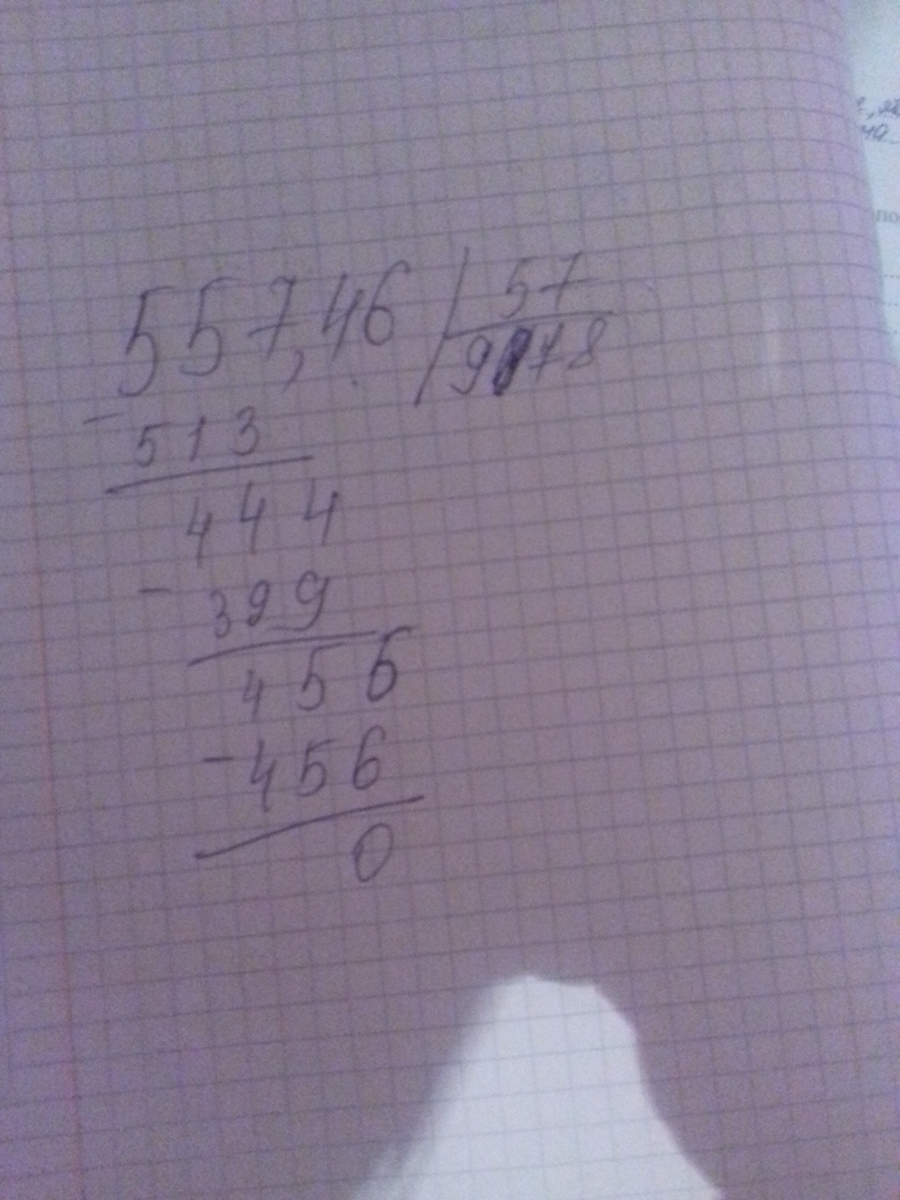 557,46 57
9,78
- 513
444
- 399
456
- 456
0
по